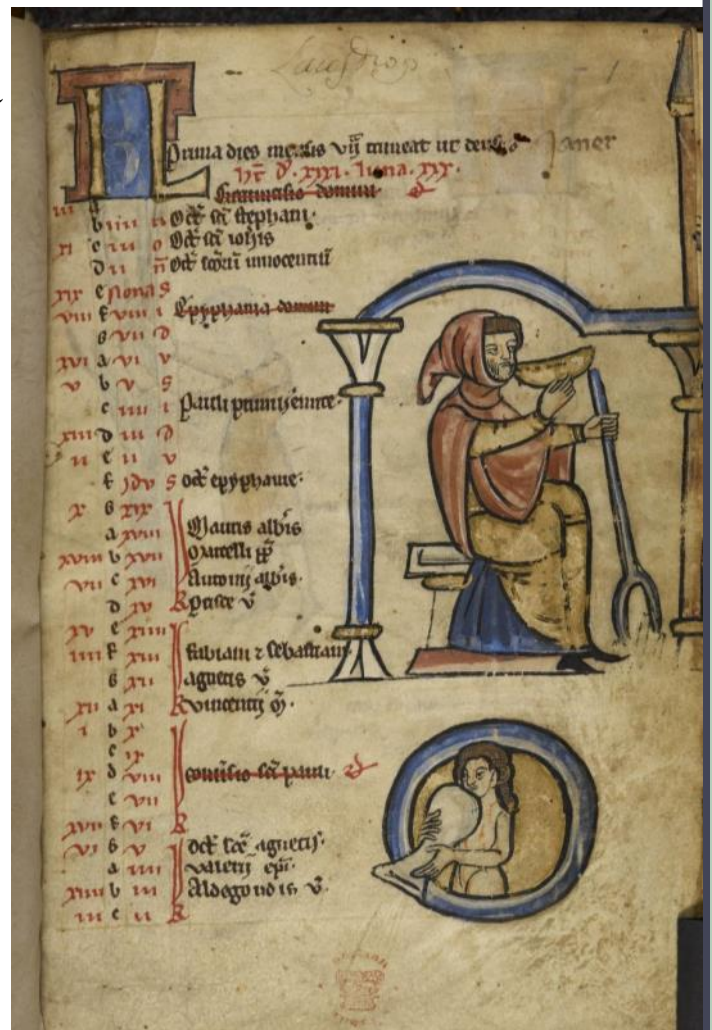 KL
Prima dies mensis vii timeat ut
Janer
ht d xxxi luna xxx
iii a Circumcisio domini
b iiii n Oct sci stephani
xi c iii o Oct sci iohis
d ii n Oct scoru innocentu
xix e Nonas
viii f viii i Epyphania domini
g vii d
xvi a vi v
v b v s
c iiii i Pauli primi
xiii d iii d
ii e ii v
f Jdus oct epyphanie
x g xix
a xviii Mauri
xviii b xvii Marcelli pp
vii c xvi Antonii
d xv Prisce v
xv e xiiii
iiii f xiii fabiani z sebastiani
g xii agnetis v
xii a xi vincentii m
i b x
c ix
ix d viii conversio sci pauli
e vii
xvii f vi
vi g v oct sce agnetis
a iiii valerii epi
xiiii b iii Aldegondis v
iii c ii